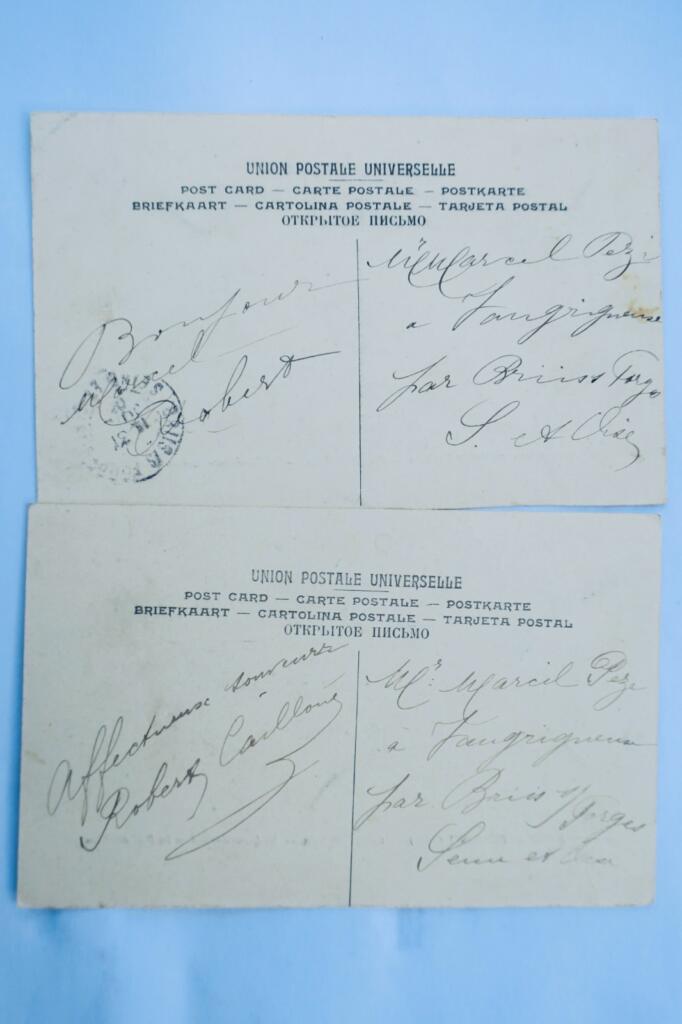 UNION POSTALE UNIVERSELLE
POST CARD — CARTE POSTALE — POSTKARTE
BRIEFKAART — CARTOLINA POSTALE — TARJETA POSTAL
ОТКРЫТОЕ ПИСЬМО
Bonjour
Marcel
Robert
Mr Marcel
a Vaugrigneuse
par Briiss Forge
S. et Oise
UNION POSTALE UNIVERSELLE
POST CARD — CARTE POSTALE — POSTKARTE
BRIEFKAART — CARTOLINA POSTALE — TARJETA POSTAL
ОТКРЫТОЕ ПИСЬМО
Affectueux souvenirs
Robert
Mr Marcel
à Vaugrigneuse
par Briis s/ Forges
Seine et Oise